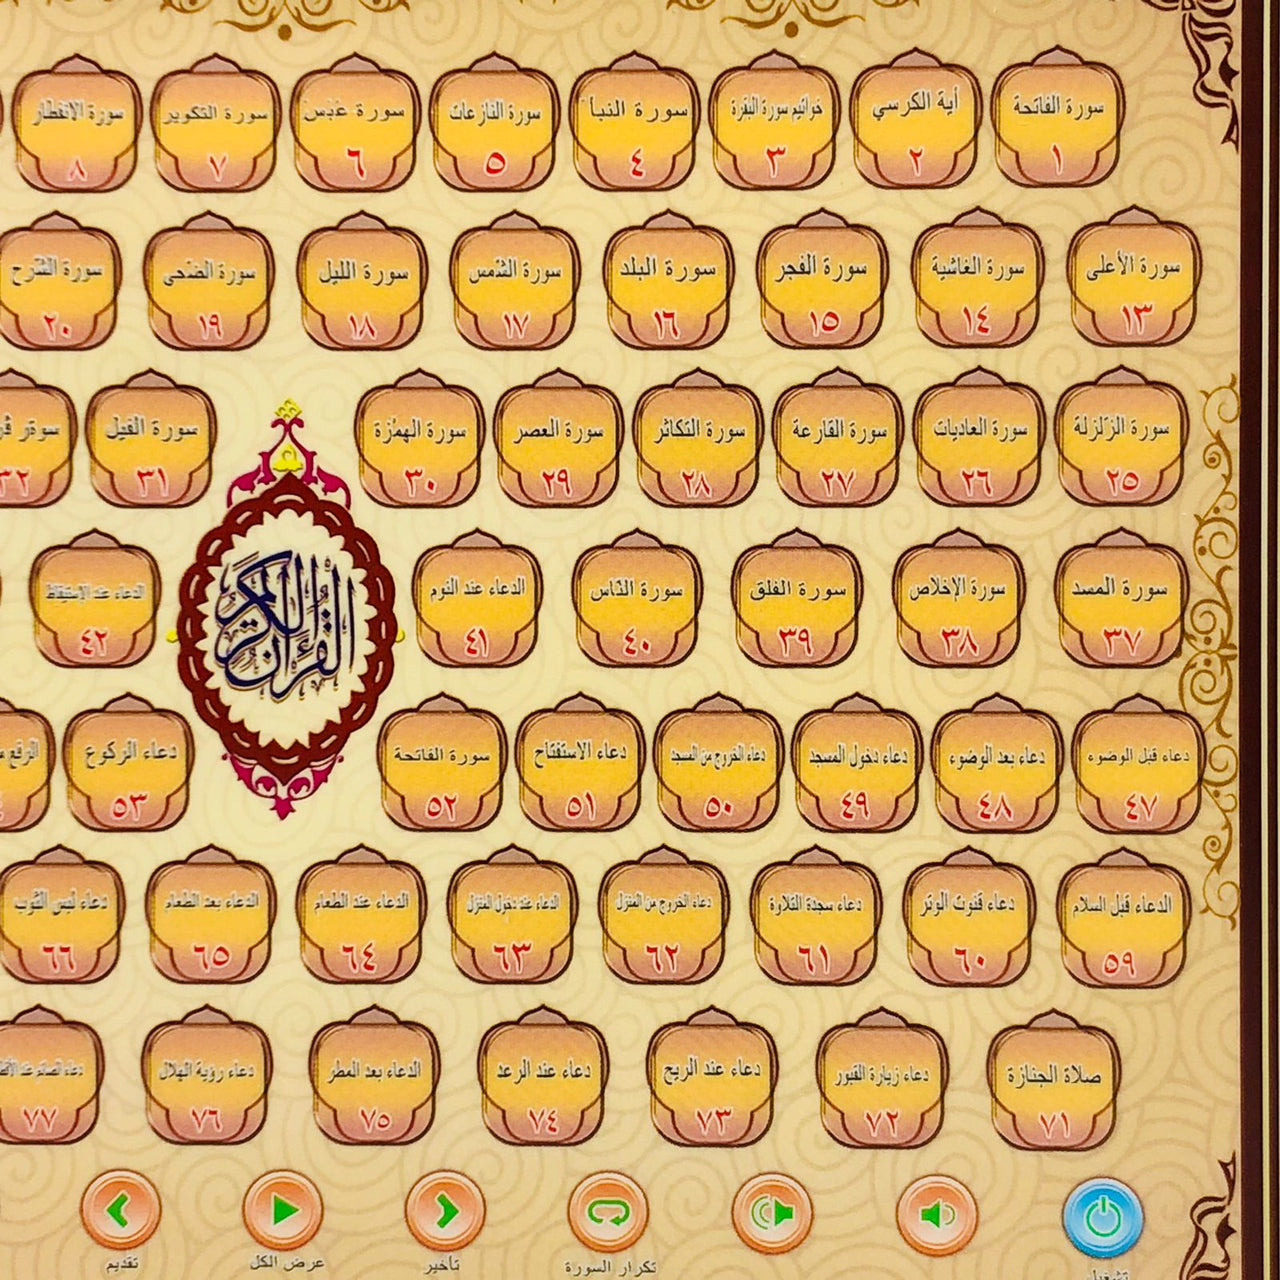 سورة الفاتحة ١
أية الكرسي ٢
خواتيم سورة البقرة ٣
سورة النبأ ٤
سورة النازعات ٥
سورة عبس ٦
سورة التكوير ٧
سورة الانفطار ٨
سورة الأعلى ١٣
سورة الغاشية ١٤
سورة الفجر ١٥
سورة البلد ١٦
سورة الشمس ١٧
سورة الليل ١٨
سورة الضحى ١٩
سورة الشرح ٢٠
سورة الزلزلة ٢٥
سورة العاديات ٢٦
سورة القارعة ٢٧
سورة التكاثر ٢٨
سورة العصر ٢٩
سورة الهمزة ٣٠
سورة الفيل ٣١
٣٢
سورة المسد ٣٧
سورة الإخلاص ٣٨
سورة الفلق ٣٩
سورة الناس ٤٠
الدعاء عند النوم ٤١
القرآن الكريم
الدعاء عند الإستيقاظ ٤٢
دعاء قبل الوضوء ٤٧
دعاء بعد الوضوء ٤٨
دعاء دخول المسجد ٤٩
دعاء الخروج من المسجد ٥٠
دعاء الاستفتاح ٥١
سورة الفاتحة ٥٢
دعاء الركوع ٥٣
الرفع
الدعاء قبل السلام ٥٩
دعاء قنوت الوتر ٦٠
دعاء سجدة التلاوة ٦١
دعاء الخروج من المنزل ٦٢
الدعاء عند دخول المنزل ٦٣
الدعاء عند الطعام ٦٤
الدعاء بعد الطعام ٦٥
دعاء لبس الثوب ٦٦
صلاة الجنازة ٧١
دعاء زيارة القبور ٧٢
دعاء عند الريح ٧٣
دعاء عند الرعد ٧٤
الدعاء بعد المطر ٧٥
دعاء رؤية الهلال ٧٦
دعاء الصائم عند ٧٧
تشغيل
تكرار السورة
تأخير
عرض الكل
تقديم